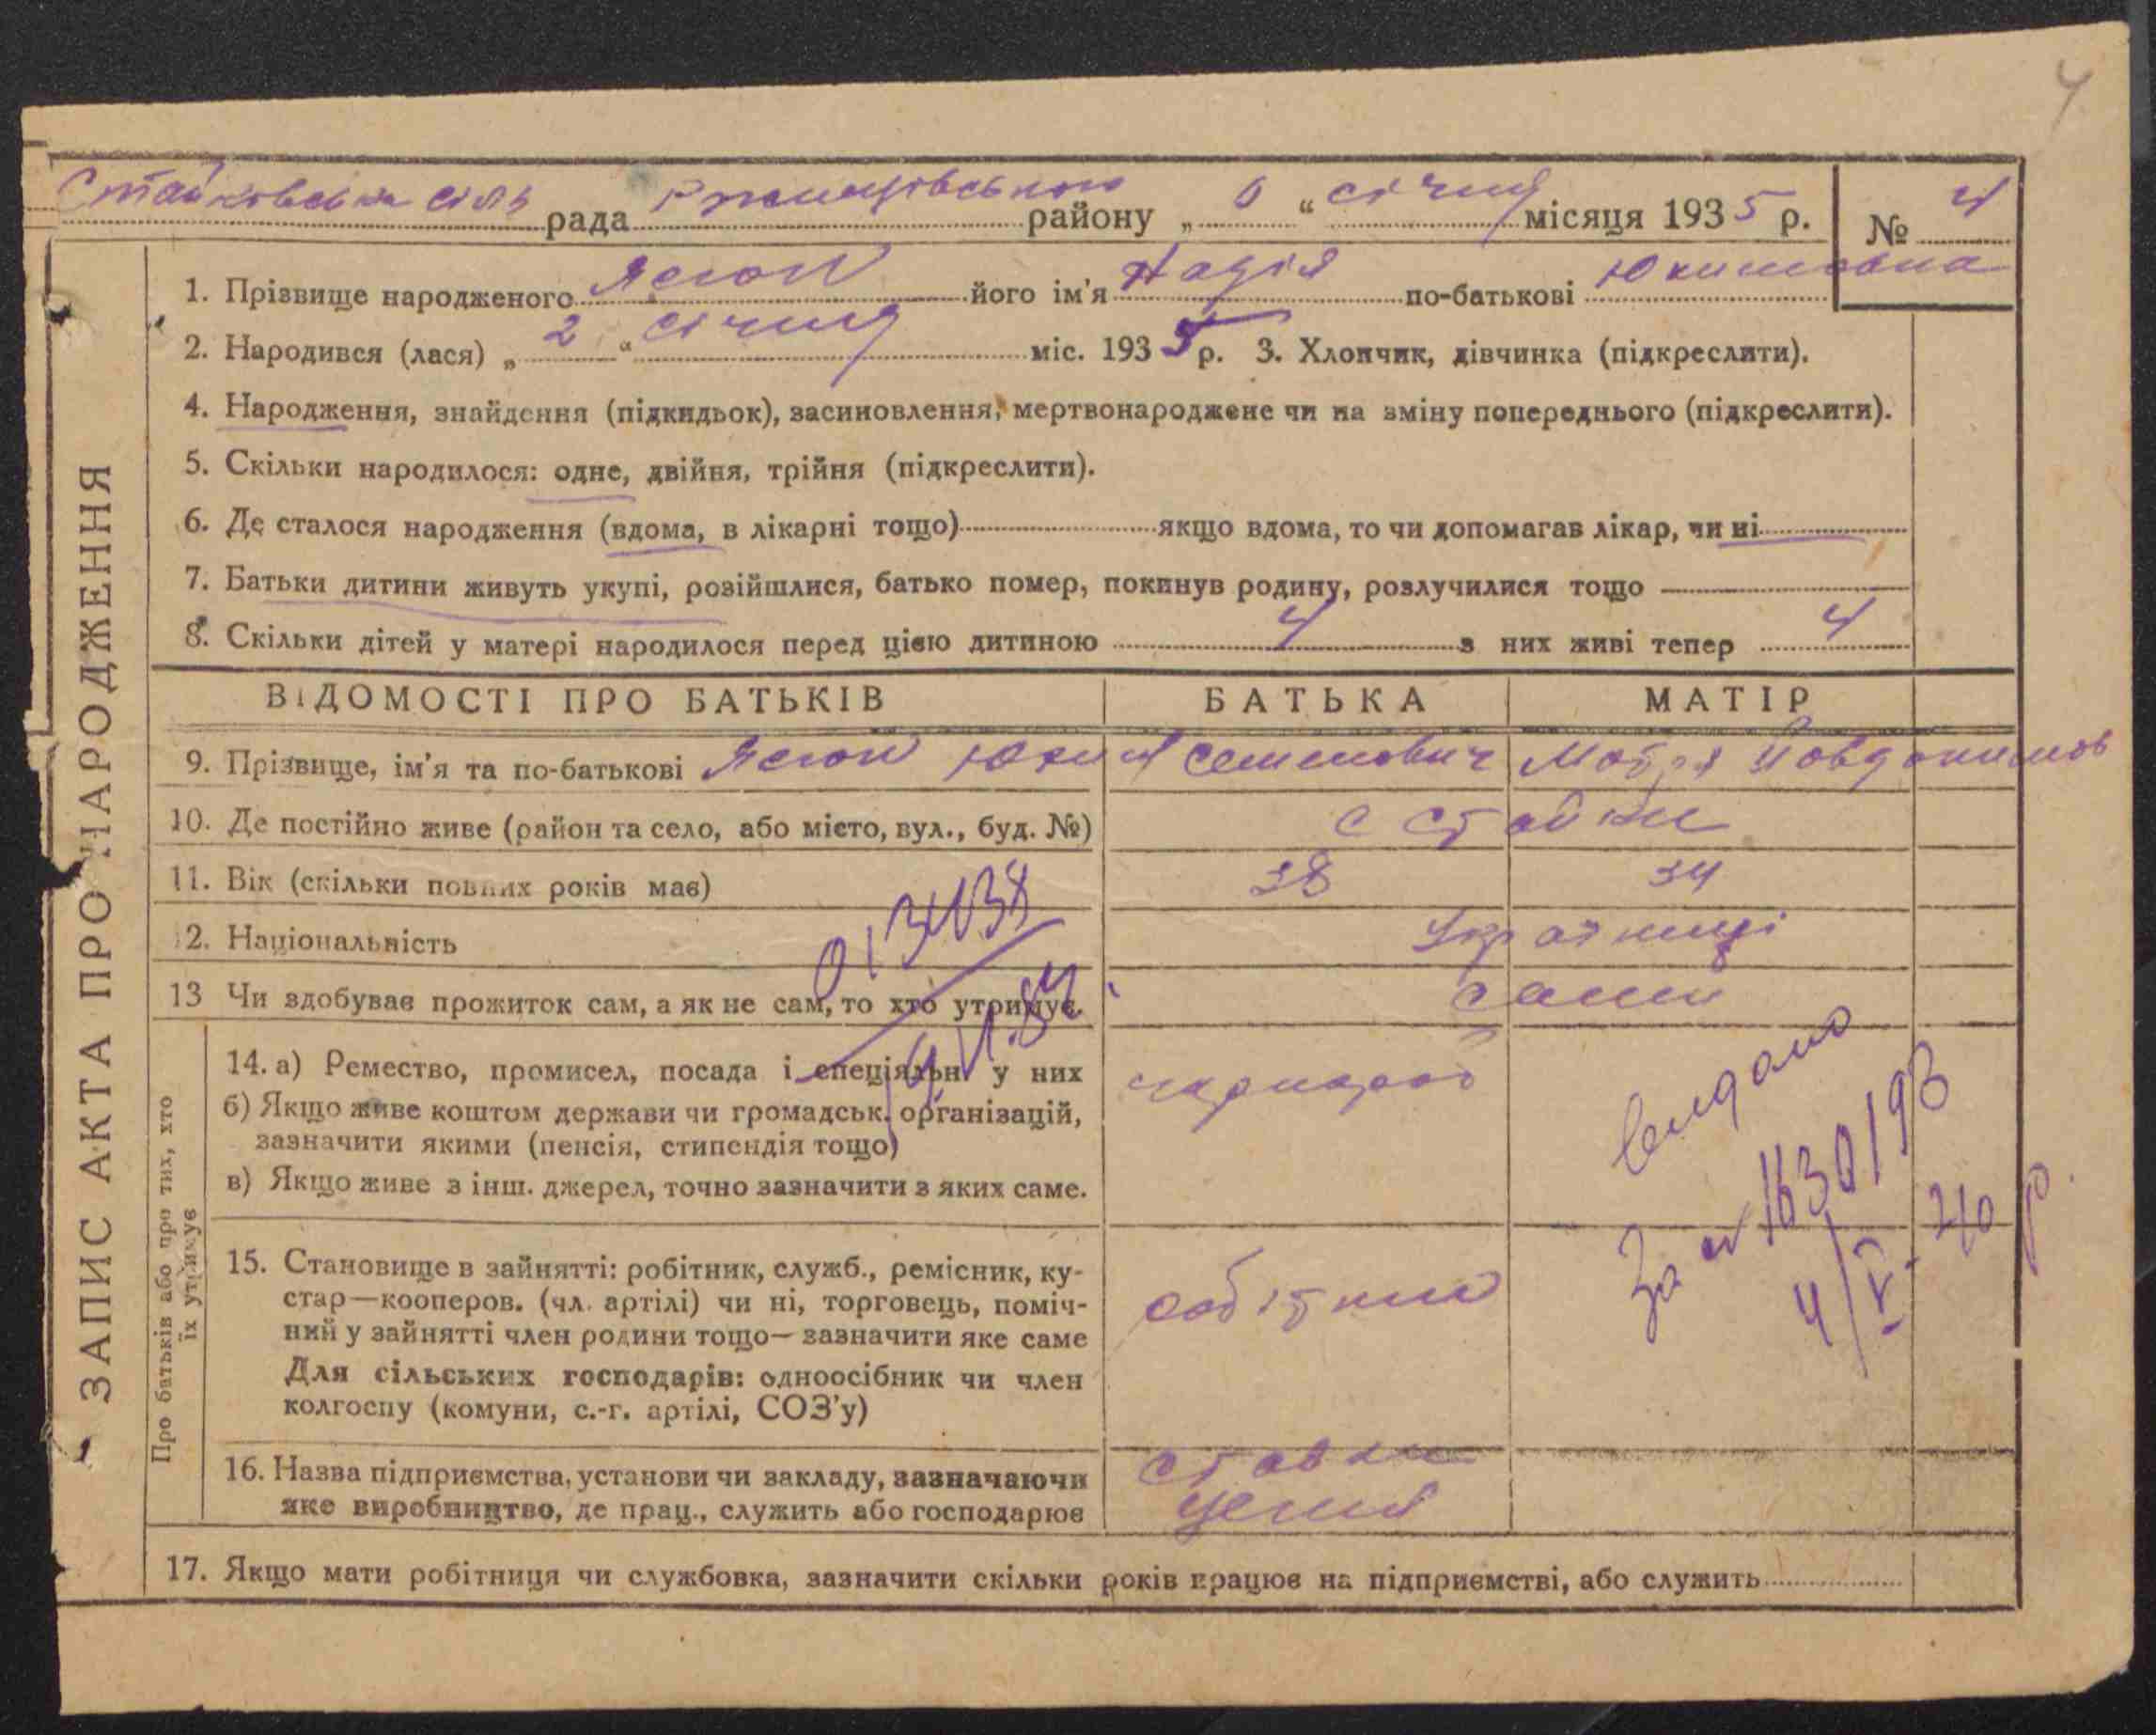 4
Стайковська сіль рада Ржищівського району „ 6 “ січня місяця 1935 р. № 4
1. Прізвище народженого його ім'я Надія по-батькові Юхимовна
2. Народився (лася) „ 2 “ січня міс. 1935 р. 3. Хлопчик, дівчинка (підкреслити).
4. Народження, знайдення (підкидьок), засиновлення, мертвонароджене чи на зміну попереднього (підкреслити).
5. Скільки народилося: одне, двійня, трійня (підкреслити).
6. Де сталося народження (вдома, в лікарні тощо) якщо вдома, то чи допомагав лікар, чи ні
7. Батьки дитини живуть укупі, розійшлися, батько помер, покинув родину, розлучилися тощо
8. Скільки дітей у матері народилося перед цією дитиною 4 з них живі тепер 4
ВІДОМОСТІ ПРО БАТЬКІВ БАТЬКА МАТІР
9. Прізвище, ім'я та по-батькові Юхим Семенович Мотря
10. Де постійно живе (район та село, або місто, вул., буд. №) с Стайки
11. Вік (скільки повних років має) 38 34
12. Національність Українці
13 Чи здобуває прожиток сам, а як не сам, то хто утримує. сами
14. а) Ремество, промисел, посада і спеціяльн. у них
б) Якщо живе коштом держави чи громадськ. організацій,
зазначити якими (пенсія, стипендія тощо)
в) Якщо живе з інш. джерел, точно зазначити з яких саме.
15. Становище в зайнятті: робітник, служб., ремісник, ку-
стар—кооперов. (чл. артілі) чи ні, торговець, поміч-
ний у зайнятті член родини тощо— зазначити яке саме
Для сільських господарів: одноосібник чи член
колгоспу (комуни, с.-г. артілі, СОЗ'у)
робітник
16. Назва підприємства, установи чи закладу, зазначаючи
яке виробництво, де прац., служить або господарює
Стайки
17. Якщо мати робітниця чи службовка, зазначити скільки років працює на підприємстві, або служить
ЗАПИС АКТА ПРО НАРОДЖЕННЯ
Про батьків або про тих, хто
їх утримує
видано
За № 1630193
4/V 40 р.